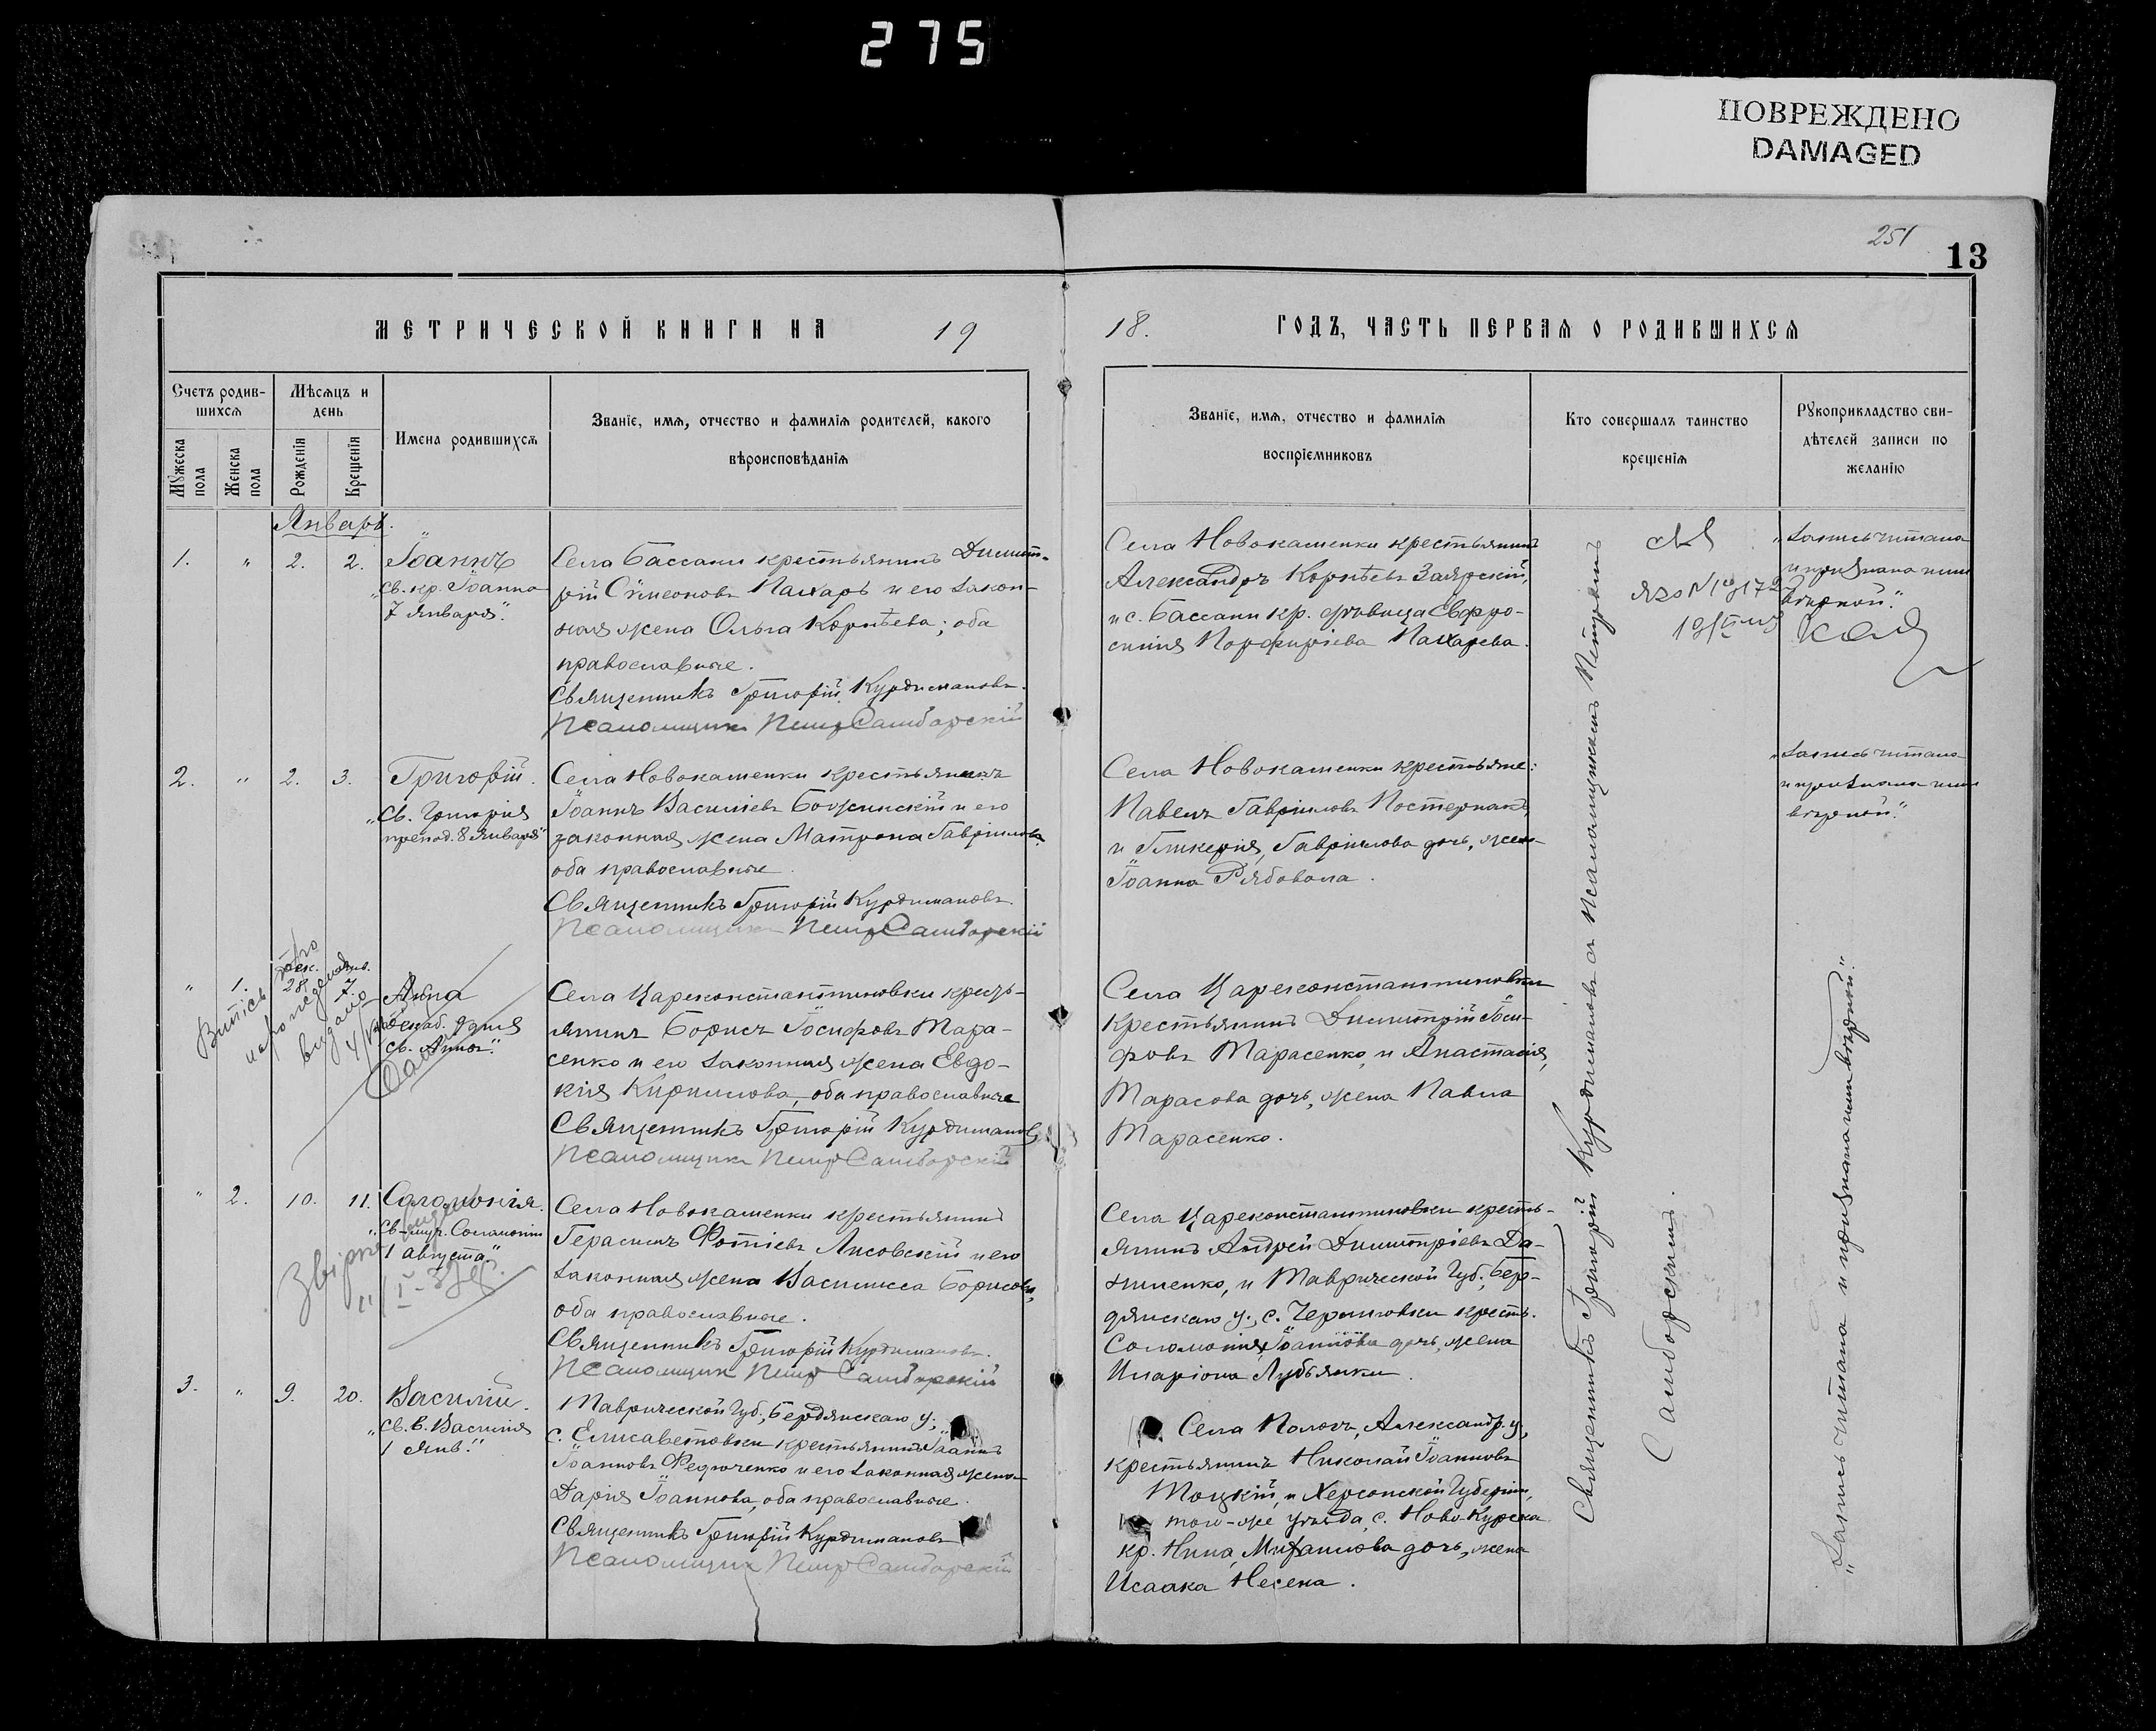 275
ПОВРЕЖДЕНО
DAMAGED
251
13
МЕТРИЧЕСКОЙ КНИГИ НА 19
18. ГОДЪ, ЧАСТЬ ПЕРВАѦ О РОДИВШИХСѦ
Счетъ родив-
шихсѧ
Мужеска
пола
Женска
пола
Мѣсѧцъ и
день
Рожденїѧ
Крещенїѧ
Имена родившихсѧ
Званїе, имѧ, отчество и фамилїѧ родителей, какого
вѣроисповѣданїѧ
Званїе, имѧ, отчество и фамилїѧ
воспрїемниковъ
Кто совершалъ таинство
крещенїѧ
Рꙋкоприкладство сви-
дѣтелей записи по
желанїю
Январь.
1. " 2. 2. Іоаннъ
"св. кр. Іоанна
7 января".
Села Бассани крестьянинъ Димит-
рій Сѵмеоновъ Пахарь и его закон-
ная жена Ольга Корнѣева; оба
православные.
Священникъ Григорій Курдимановъ.
Псаломщикъ Петр Самборскій
Села Новокаменки крестьянинъ
Александръ Корнѣевъ Заярскій,
и с. Бассани кр. дѣвица Евфро-
синія Порфиріева Пахарева.
"Запись читана
и признана нами
вѣрной".
2. " 2. 3. Григорій.
"Св. Григорія
препод. 8 января"
Села Новокаменки крестьянинъ
Іоаннъ Василіевъ Божинскій и его
законная жена Матрона Гавріилова
оба православные.
Священникъ Григорій Курдимановъ.
Псаломщикъ Петр Самборскій
Села Новокаменки крестьяне:
Павелъ Гавріиловъ Постернакъ,
и Гликерія, Гавріилова дочь, жена
Іоанна Рябовола.
"Запись читана
и признана нами
вѣрной".
" 1. Дек. 28. Янв. 7. Анна
декаб. 9 дня
св. Анны".
Витісь про
народження
видано
Села Цареконстантиновки кресть-
янинъ Борисъ Іосифовъ Тара-
сенко и его законная жена Евдо-
кія Кирилова, оба православные
Священникъ Григорій Курдимановъ
Псаломщикъ Петр Самборскій
Села Цареконстантиновки
крестьянинъ Димитрій Іоси-
фовъ Тарасенко, и Анастасія,
Тарасова дочь, жена Павла
Тарасенко.
" 2. 10. 11. Саломонія.
"Св. муч. Соломоніи
1 августа".
Села Новокаменки крестьянинъ
Герасимъ Фотіевъ Лисовскій и его
законная жена Василисса Борисова,
оба православные.
Священникъ Григорій Курдимановъ.
Псаломщик Петр Самборскій
Села Цареконстантиновки кресть-
янинъ Андрей Димитріевъ Да-
ниленко, и Таврической Губ., Бер-
дянскаго у., с. Черниговки кресть.
Соломонія, Іоаннова дочь, жена
Иларіона Лубьянки.
3. " 9. 20. Василій.
"Св. В. Василія
1 Янв."
Таврической Губ., Бердянскаго у.,
с. Елисаветовки крестьянинъ Іоаннъ
Іоанновъ Федюченко и его законная жена
Дарія Іоаннова, оба православные.
Священникъ Григорій Курдимановъ
Псаломщик Петр Самборскій
Села Пологъ, Александр. у.,
крестьянинъ Николай Іоанновъ
Тоцкій, и Херсонской Губерніи,
той-же уѣзда, с. Ново-Курска
кр. Нина, Михаилова дочь, жена
Исаака Несена.
Священникъ Григорій Курдимановъ съ Псаломщикомъ Петромъ
Самборскимъ.
"Запись читана и признана нами вѣрной".